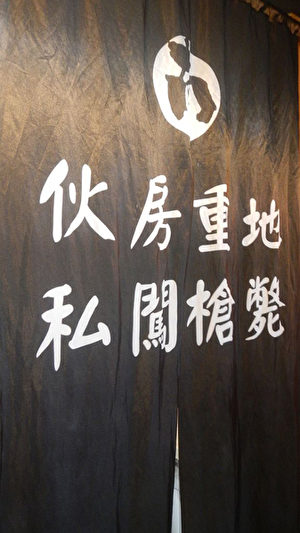 伙房重地
私闖槍斃